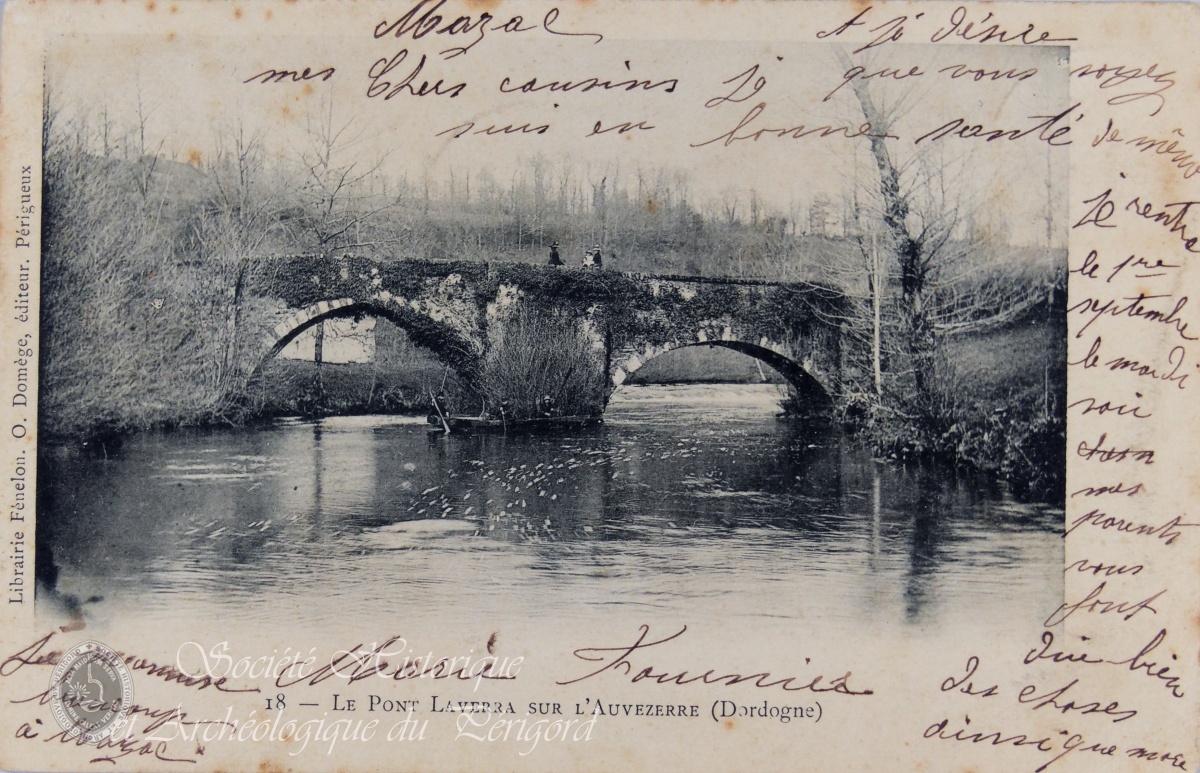 Mazac
mes Chers cousins Je
suis en bonne santé
et je désire
que vous soyez
de même
je rentre
le 1er
septembre
le mardi
soir
mes
parents
vous
font
dire bien
des choses
ainsi que
Marie Fournier
beaucoup
à Mazac
18 — LE PONT LAVERRA SUR L'AUVEZERRE (Dordogne)
Librairie Fénelon. O. Domège, éditeur. Périgueux
Société Historique
et Archéologique du Périgord